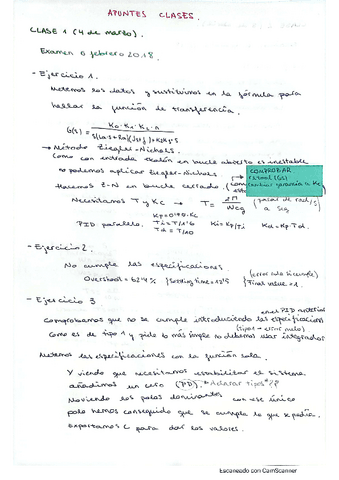 APUNTES CLASES.
CLASE 1 (4 de marzo).
Examen 0 febrero 2018.
- Ejercicio 1.
Metemos los datos y sustituimos en la fórmula para
hallar la función de transferencia.
G(s) =
→ Método Ziegler-Nichols.
Como con entrada escalón en bucle abierto es inestable
no podemos aplicar Ziegler-Nichols.
COMPROBAR
Hacemos Z-N en bucle cerrado.
cambiar ganancia a Kc
Necesitamos T y Kc → T = 2π / Wcg (pasar de rad/s a seg
Kp = 0'6·Kc
PID paralelo. Ki = Kp/Ti Kd = Kp·Td.
Td = T/8
- Ejercicio 2.
No cumple las especificaciones.
Overshoot = 62'4% / Settling time = 12's (error nulo si cumple)
Final value = 1.
- Ejercicio 3
en el PID anterior
Comprobamos que no se cumple introduciendo las especificaciones
(tipo 1 → error nulo)
Como es de tipo 1 y pide lo más simple no debemos usar integrador
Metemos las especificaciones con la función sola.
Y viendo que necesitamos estabilizar el sistema
añadimos un cero (PD).
Moviendo los polos dominantes con ese único
polo hemos conseguido que se cumpla lo que se pedía.
Exportamos C para dar los valores.
Escaneado con CamScanner